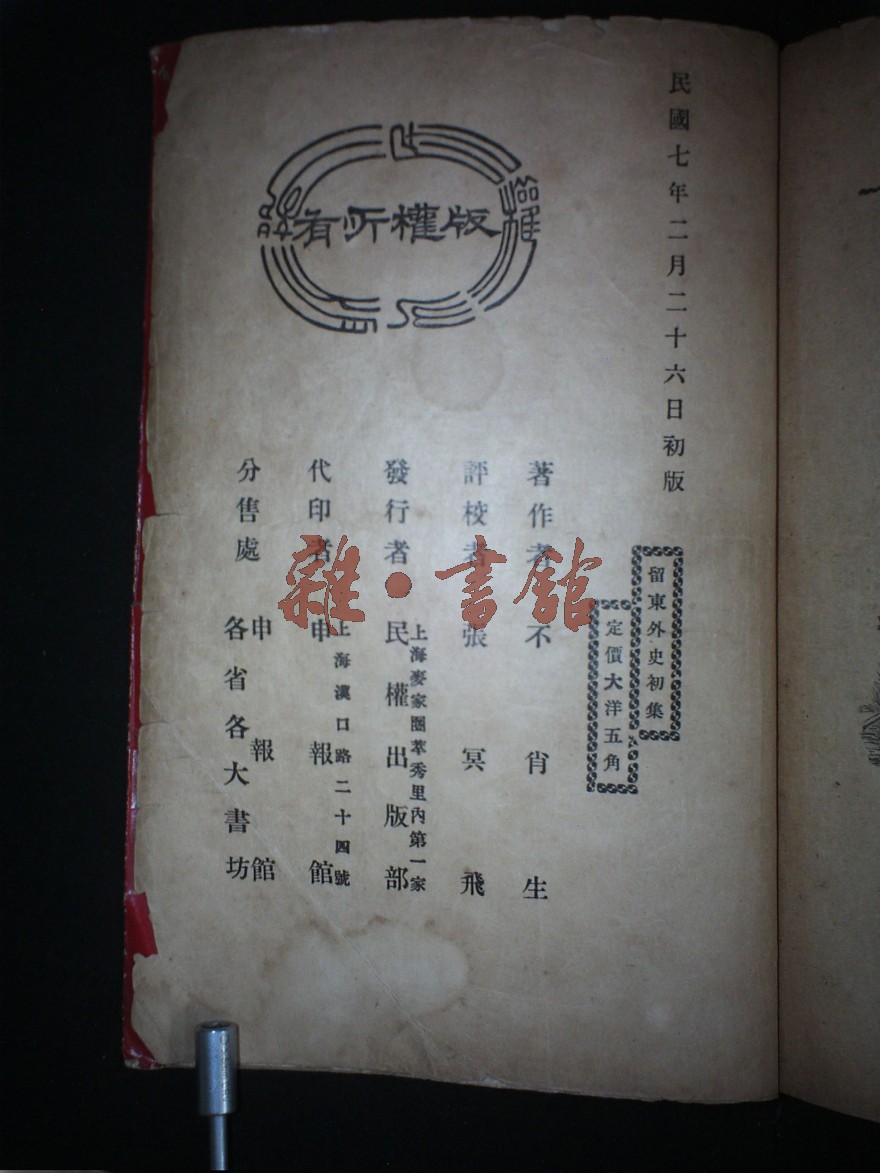 民國七年二月二十六日初版
留東外史初集
定價大洋五角
著作者 不肖生
評校者 張冥飛
上海麥家圈萃秀里內第一家
發行者 民權出版部
上海漢口路二十四號
代印者 申報館
分售處 申報館
各省各大書坊
版權所有
雜·書館